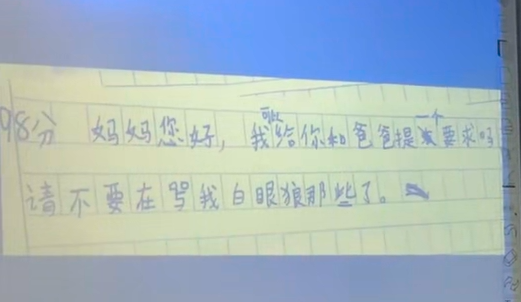 98分 妈妈您好，我可以给你和爸爸提一个要求吗
请不要在骂我白眼狼那些了。